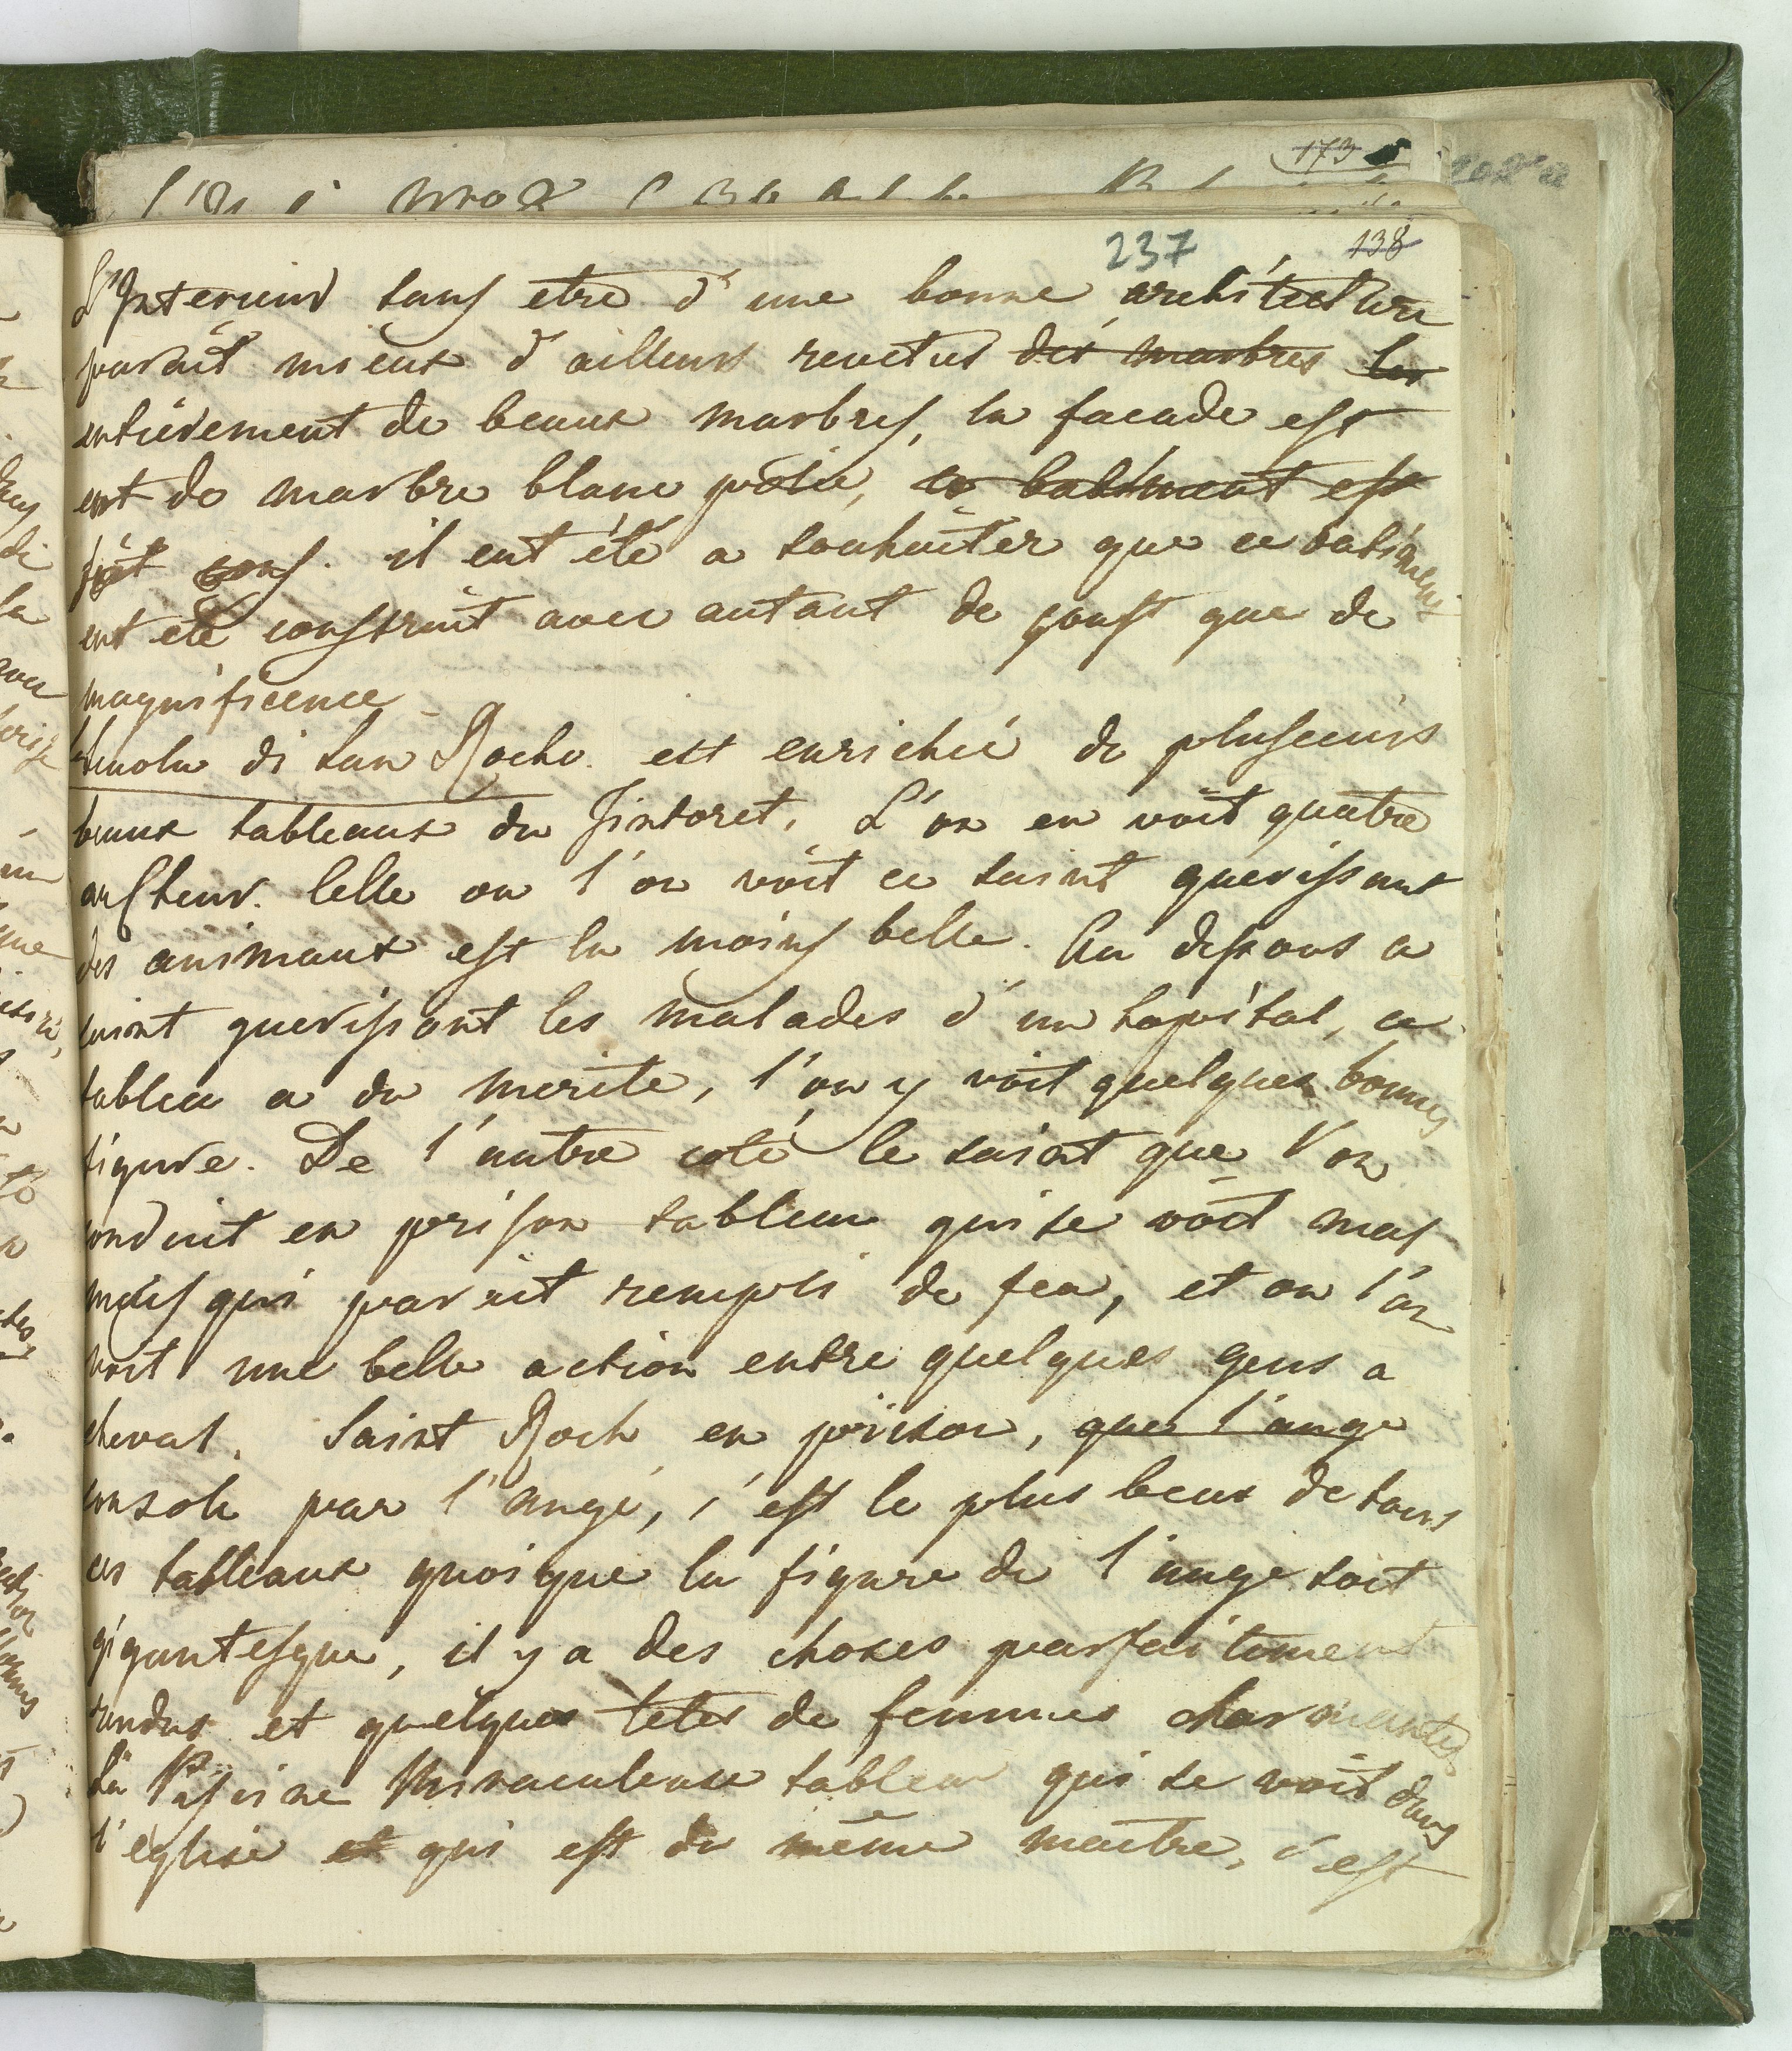 237 138
L'Interieur sans etre d'une bonne architecture
parait mieux d'ailleurs revetus des marbres les
entièrement de beaux marbres, la facade est
est de marbre blanc polie, ce batiment est
fait il eut été a souhaiter que ce batiment
eut été construit avec autant de goust que de
magnificence
schuola di san Rocho est enrichie de plusieurs
beaux tableaux du Tintoret, L'on en voit quatre
au Cheur. Celle ou l'on voit ce saint guerissant
des animaux est la moins belle. Au dessous ce
saint guerissant les malades d'un hopital, ce
tableu a du merite, l'on y voit quelques bonnes
figure. De l'autre coté le saint que l'on
conduit en prison tableau qui se voit mal
mais qui parait rempli de feu, et ou l'on
voit une belle action entre quelques gens a
cheval. Saint Roch en prison, que l'ange
consolé par l'ange, c'est le plus beau de tous
ces tableaux quoique la figure de l'ange soit
gigantesque, il y a des choses parfaitement
rendus et quelques tetes de femmes charmantes
La Piscine Miraculeuse tableau qui se voit dans
l'eglise et qui est du même maitre, c'est